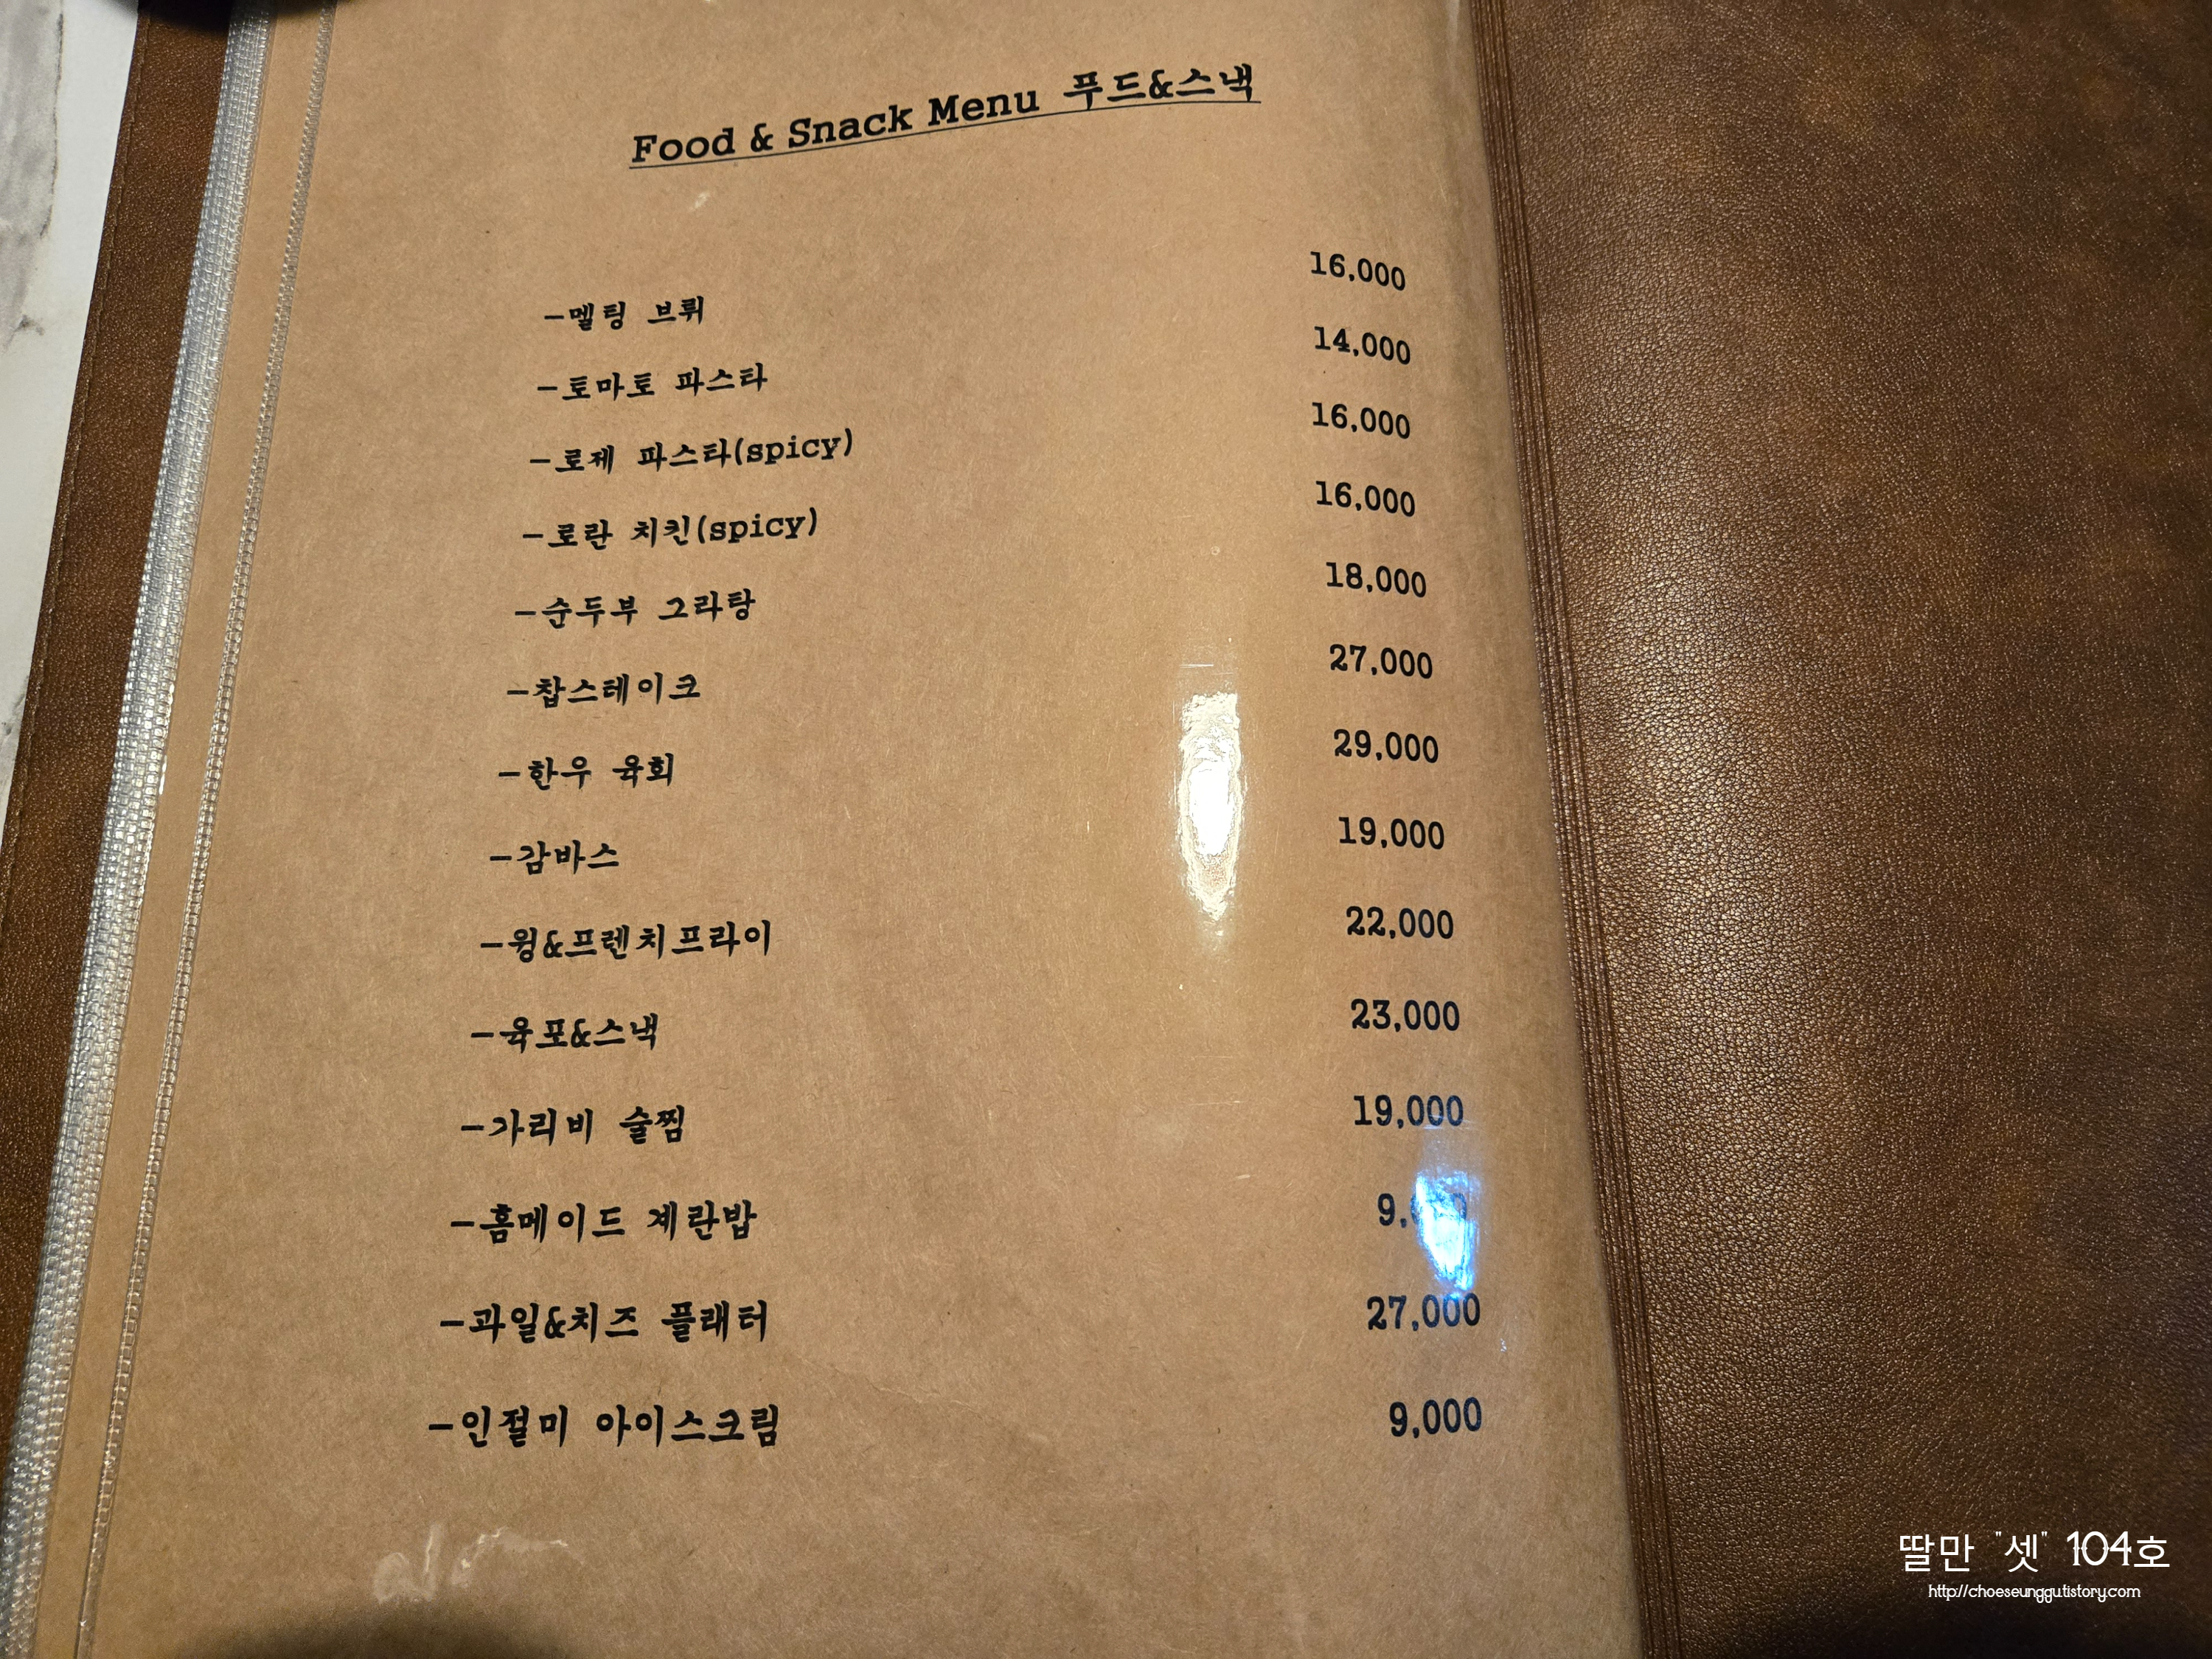 Food & Snack Menu 푸드&스낵
-멜팅 브뤼 16,000
-토마토 파스타 14,000
-로제 파스타(spicy) 16,000
-로란 치킨(spicy) 16,000
-순두부 그라탕 18,000
-찹스테이크 27,000
-한우 육회 29,000
-감바스 19,000
-윙&프렌치프라이 22,000
-육포&스낵 23,000
-가리비 술찜 19,000
-홈메이드 계란밥
-과일&치즈 플래터 27,000
-인절미 아이스크림 9,000
딸만 "셋" 104호
http://choeseunggu.tistory.com